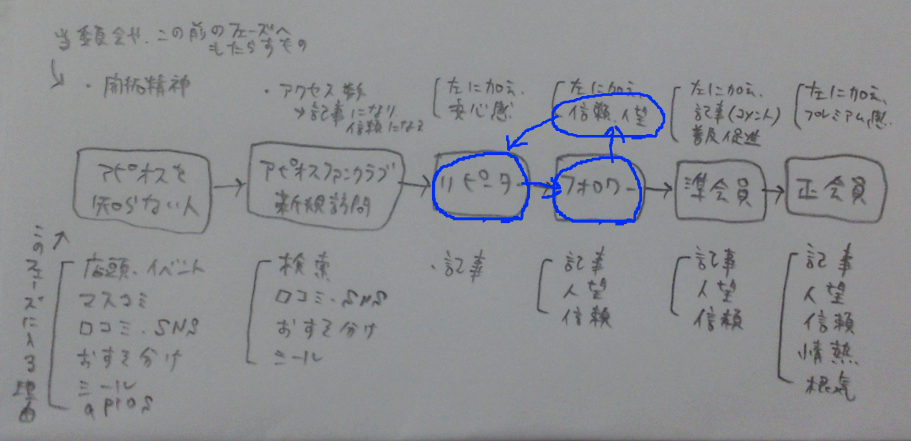 当委員会や、この前のフェーズへ
もたらすもの
・開拓精神
・アクセス数
→記事になり
信頼になる
左に加え、
安心感
左に加え、
信頼、人望
左に加え、
記事(コメント)
普及促進
左に加え、
プレミアム感
アピオスを
知らない人
アピオスファンクラブ
新規訪問
リピーター
フォロワー
準会員
正会員
このフェーズに入る理由
店頭・イベント
マスコミ
口コミ・SNS
おすそ分け
ミール
apios
検索
口コミ・SNS
おすそ分け
ミール
・記事
記事
人望
信頼
記事
人望
信頼
記事
人望
信頼
情熱
根気